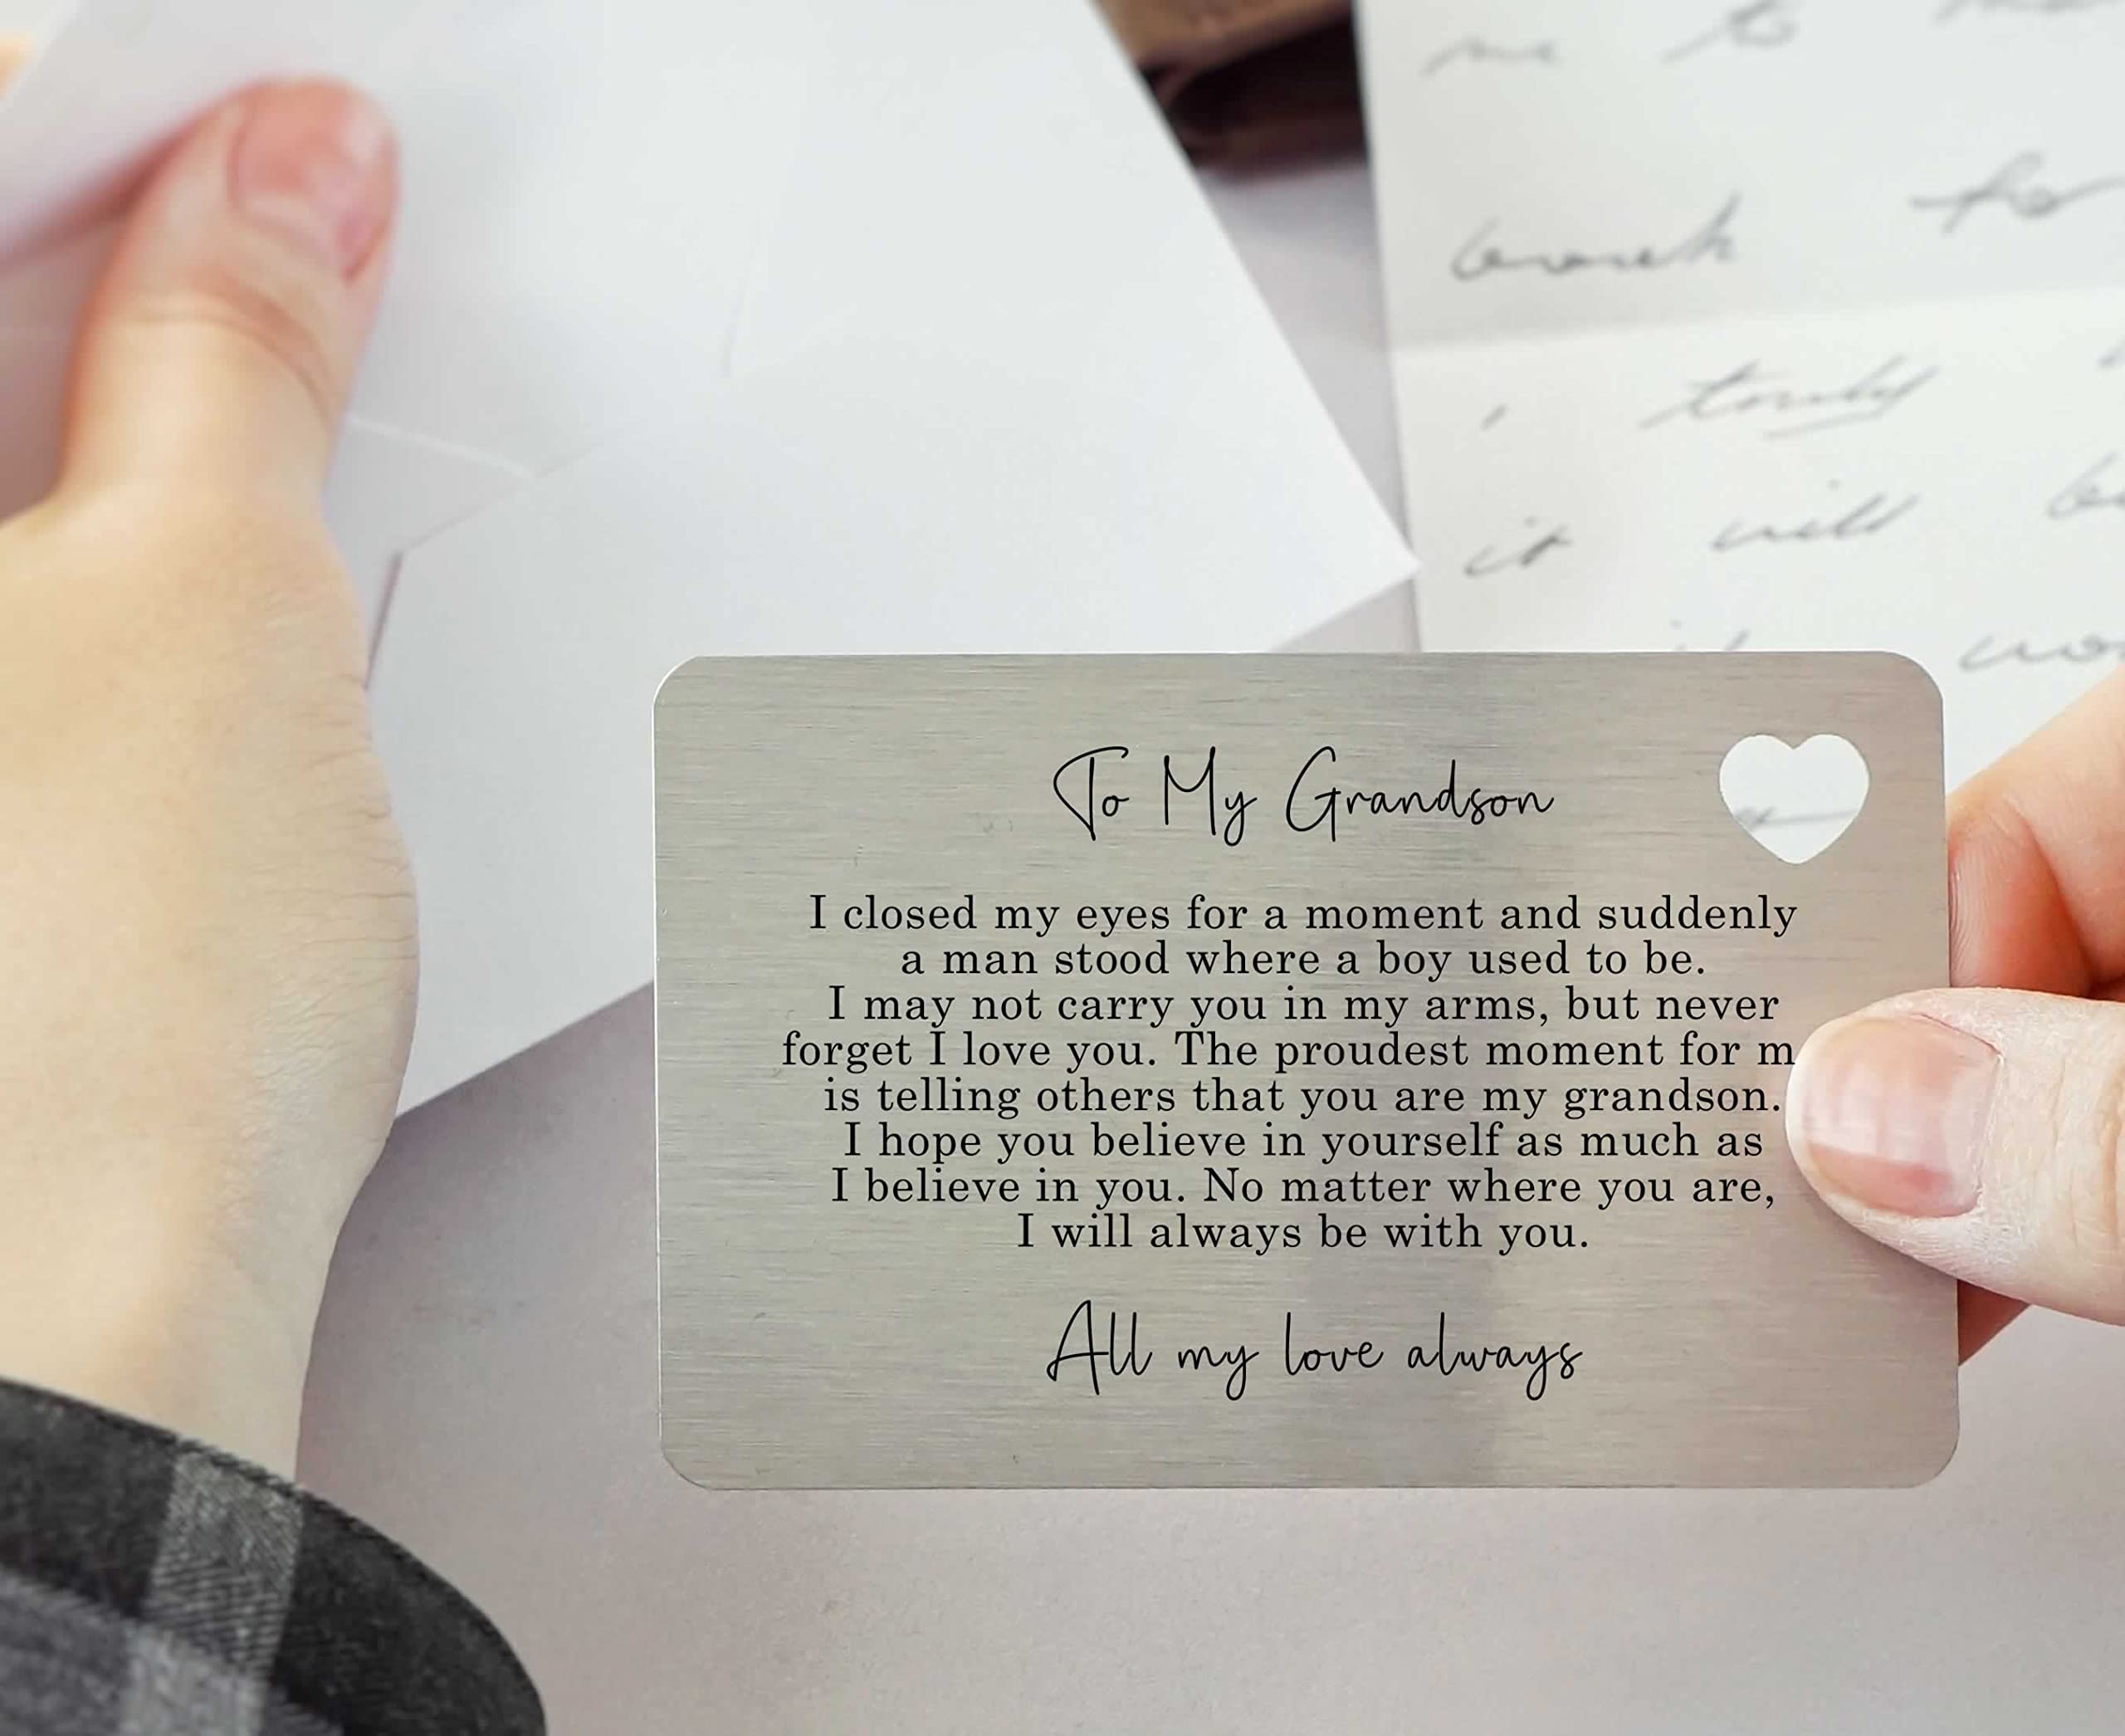 to
truly
it will
To My Grandson
I closed my eyes for a moment and suddenly
a man stood where a boy used to be.
I may not carry you in my arms, but never
forget I love you. The proudest moment for m
is telling others that you are my grandson.
I hope you believe in yourself as much as
I believe in you. No matter where you are,
I will always be with you.
All my love always